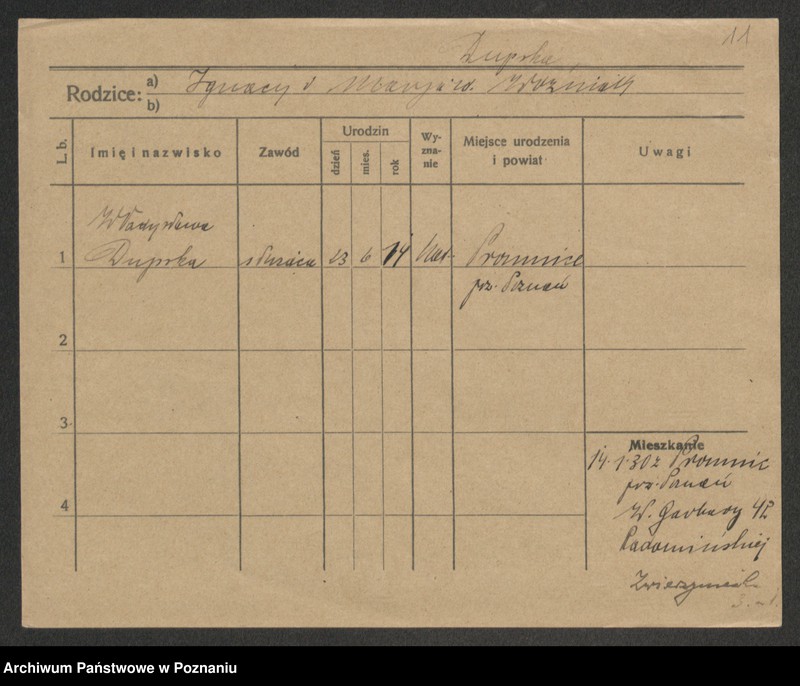 11
Dupska
Rodzice: a) b) Ignacy i Marja w. Woźniak
L. b.
Imię i nazwisko
Zawód
Urodzin
dzień
mies.
rok
Wyznanie
Miejsce urodzenia i powiat
Uwagi
1
Władysława
Dupska służąca 23 6 14 kat. Promnice
pow. Poznań
2
3
4
Mieszkanie
14.1.30 z Promnic
pow. Poznań
W. Garbary 42
Zwierzyniec
Archiwum Państwowe w Poznaniu